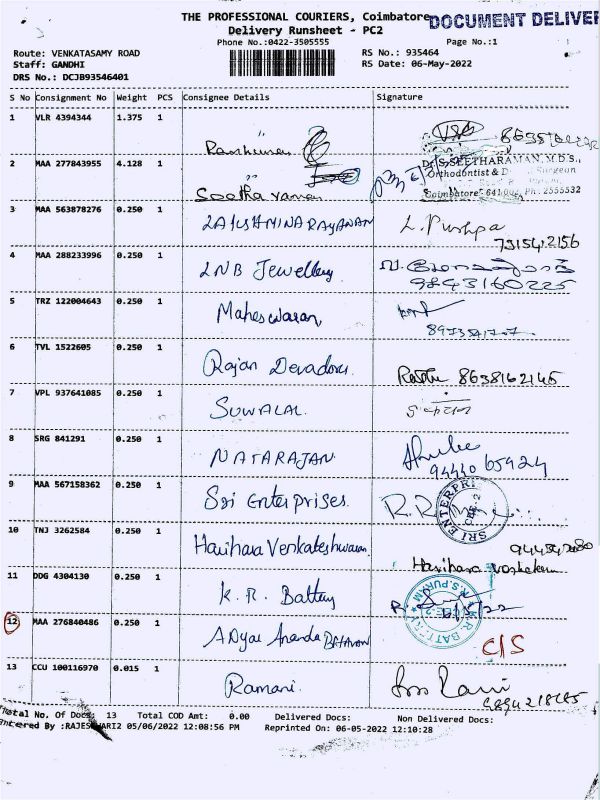 THE PROFESSIONAL COURIERS, Coimbatore
DOCUMENT DELIVER
Delivery Runsheet - PC2
Phone No.:0422-3505555
Page No.:1
Route: VENKATASAMY ROAD
RS No.: 935464
Staff: GANDHI
RS Date: 06-May-2022
DRS No.: DCJB93546401
S No Consignment No Weight PCS Consignee Details Signature
1 VLR 4394344 1.375 1
2 MAA 277843955 4.128 1
Dr. S. SEETHARAMAN, M.D.S.,
Orthodontist & Surgeon
Coimbatore - 641 002, Ph : 2555532
Seetharaman
3 MAA 563878276 0.250 1 LAKSHMINARAYANAN L. Pushpa
4 MAA 288233996 0.250 1 LNB Jewellery
9843160225
5 TRZ 122004643 0.250 1 Maheswaran
6 TVL 1522605 0.250 1 Rajan Devadoss
8638162145
7 VPL 937641085 0.250 1 SUWALAL
8 SRG 841291 0.250 1 NATARAJAN
94440 65924
9 MAA 567158362 0.250 1 Sri Enterprises
SRI ENTERPRI
CBE-2
10 TNJ 3262584 0.250 1 Harihara Venkateshwaran
11 DDG 4304130 0.250 1 K.R. Battery
R.S.PURAM
CBE-2
K.R. BATTERY
12 MAA 276840486 0.250 1 ADyar Ananda BHAVAN C/S
13 CCU 100116970 0.015 1 Ramani
Total No. Of Docs 13 Total COD Amt: 0.00 Delivered Docs: Non Delivered Docs:
Entered By :RAJESWARI2 05/06/2022 12:08:56 PM Reprinted On: 06-05-2022 12:10:28